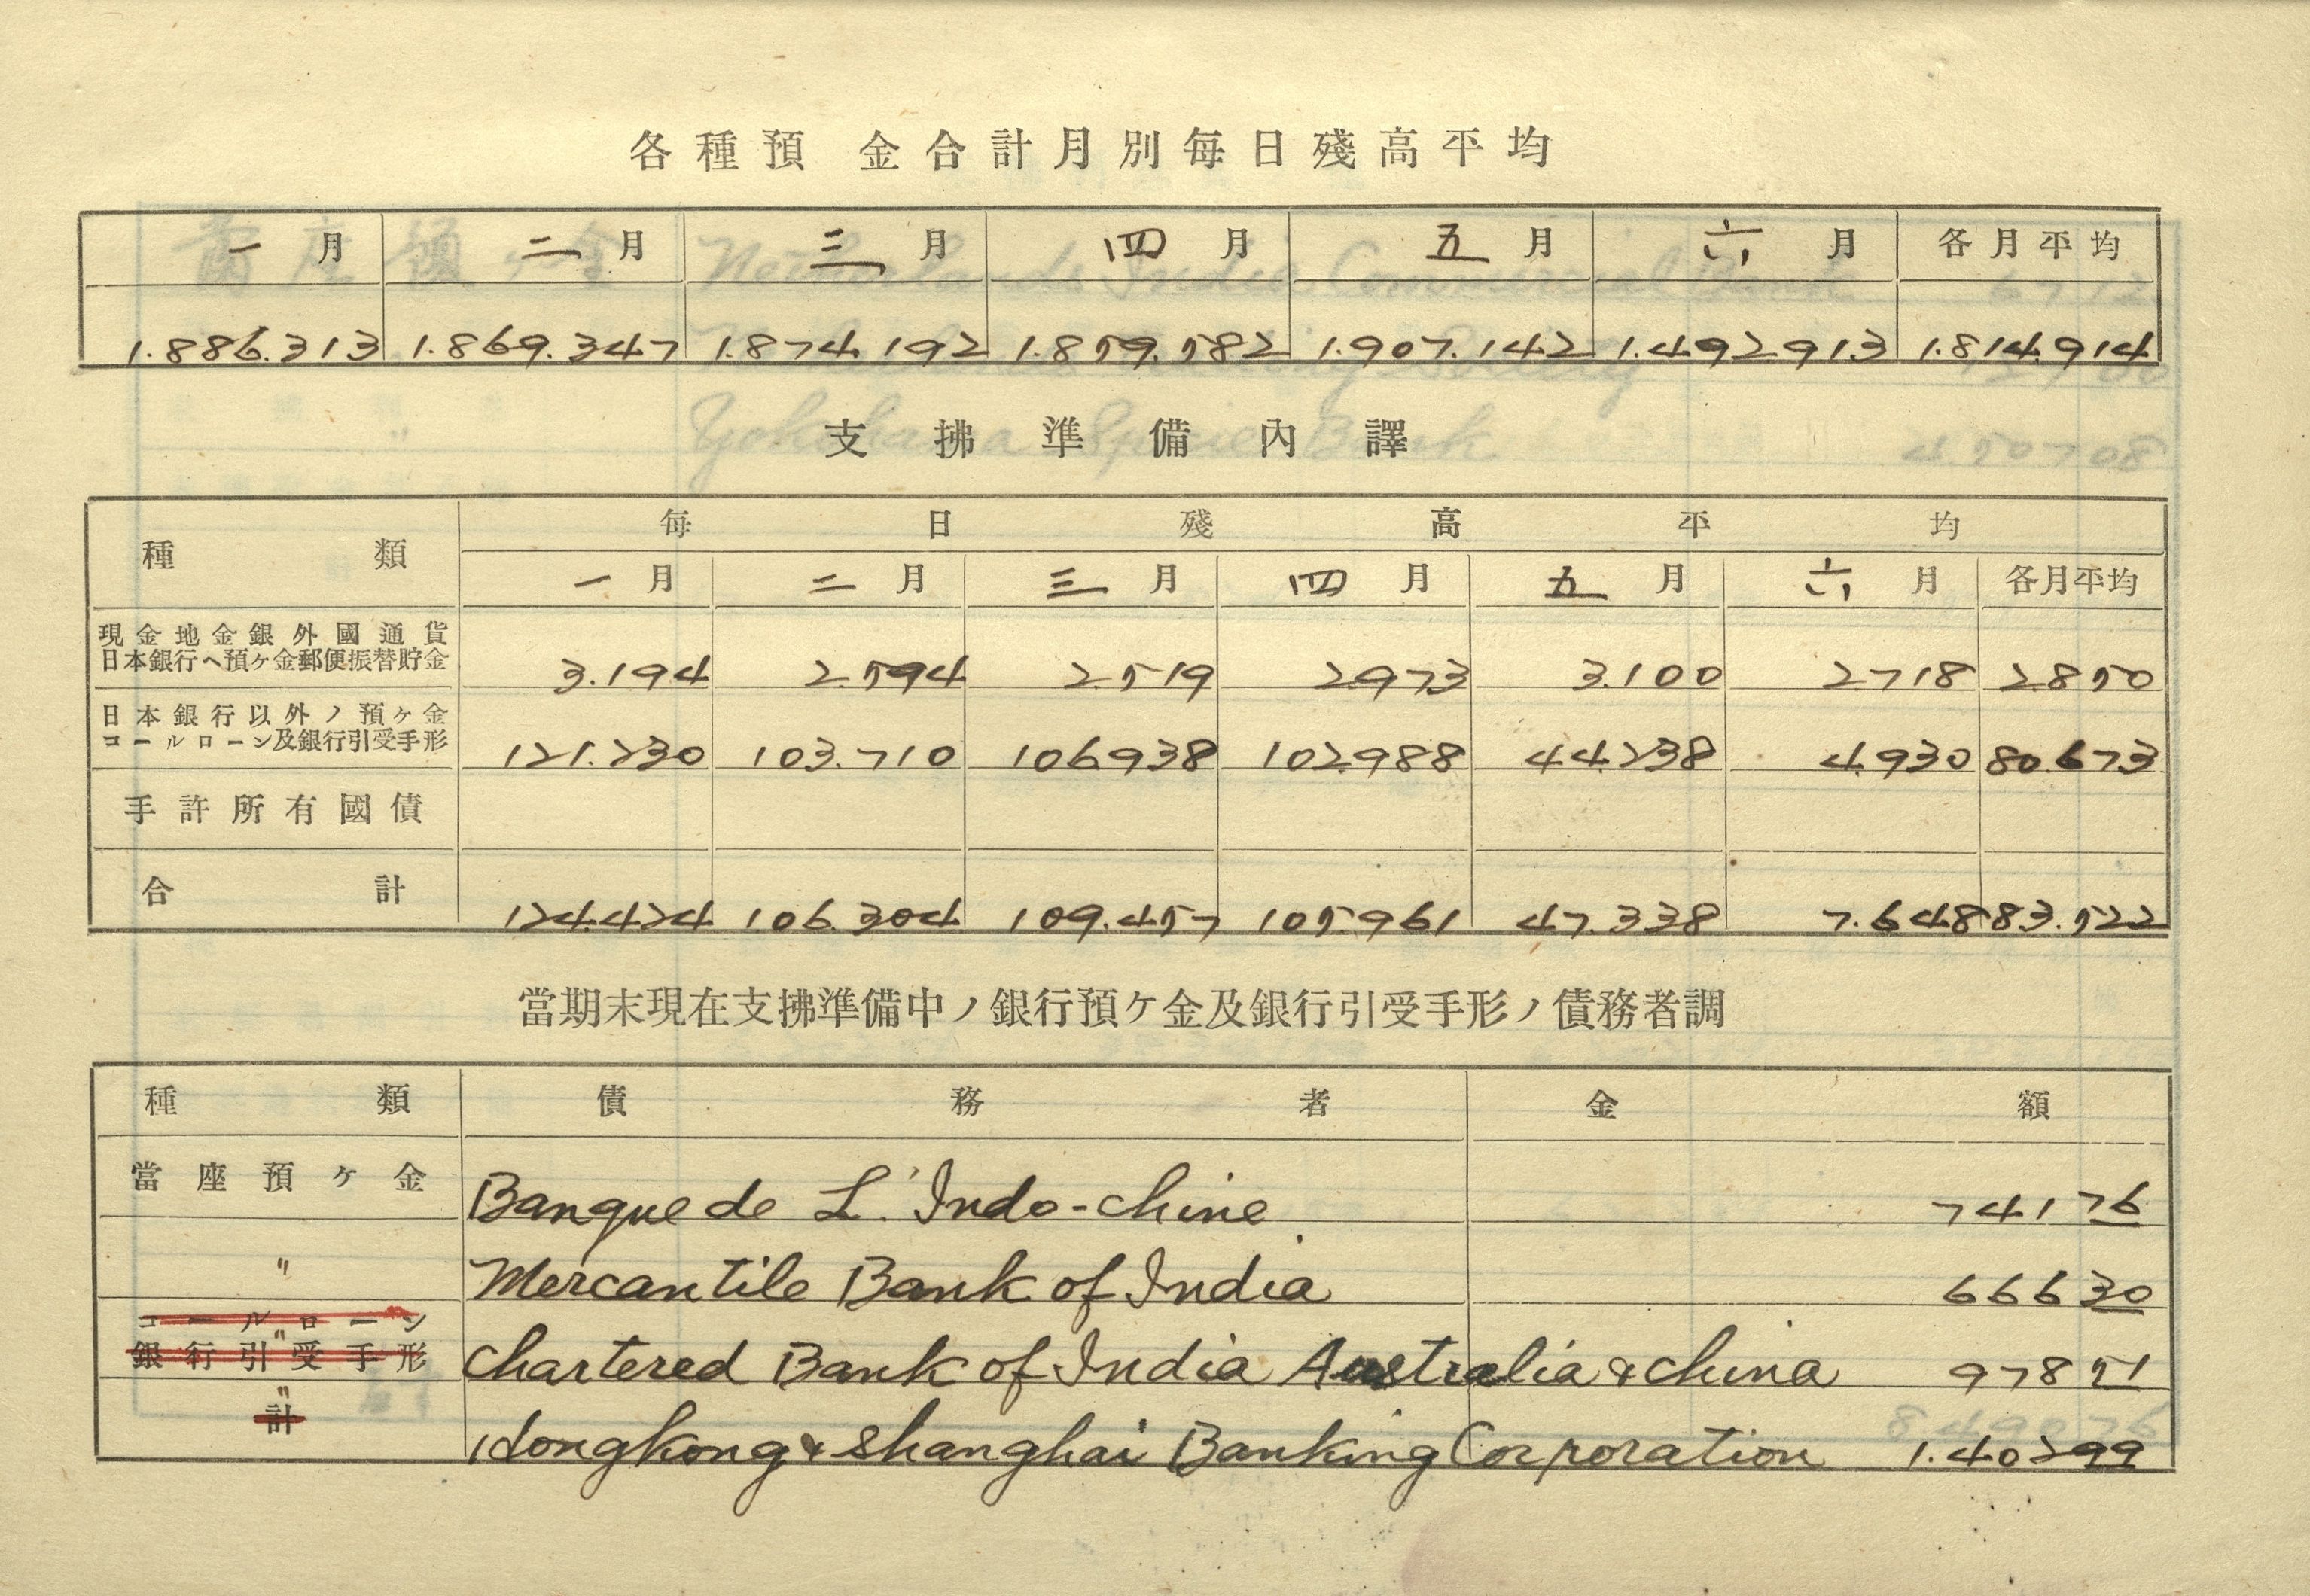 各種預金合計月別每日殘高平均
一月 二月 三月 四月 五月 六月 各月平均
1.886.313 1.869.347 1.874.192 1.859.582 1.907.142 1.492913 1.814.914
支拂準備內譯
種類 每日殘高平均
一月 二月 三月 四月 五月 六月 各月平均
現金地金銀外國通貨
日本銀行ヘ預ケ金郵便振替貯金 3.194 2.594 2.519 2973 3.100 2718 2.850
日本銀行以外ノ預ケ金
コールローン及銀行引受手形 121.230 103.710 106938 102988 44.238 4.930 80.673
手許所有國債
合計 124.424 106.304 109.457 105.961 47.338 7.648 83.522
當期末現在支拂準備中ノ銀行預ケ金及銀行引受手形ノ債務者調
種類 債務者 金額
當座預ケ金 Banque de L'Indo-chine 741 76
" Mercantile Bank of India 666 30
コールローン
"
銀行引受手形 Chartered Bank of India Australia & China 978 51
"
計 Hongkong & Shanghai Banking Corporation 1.402 99